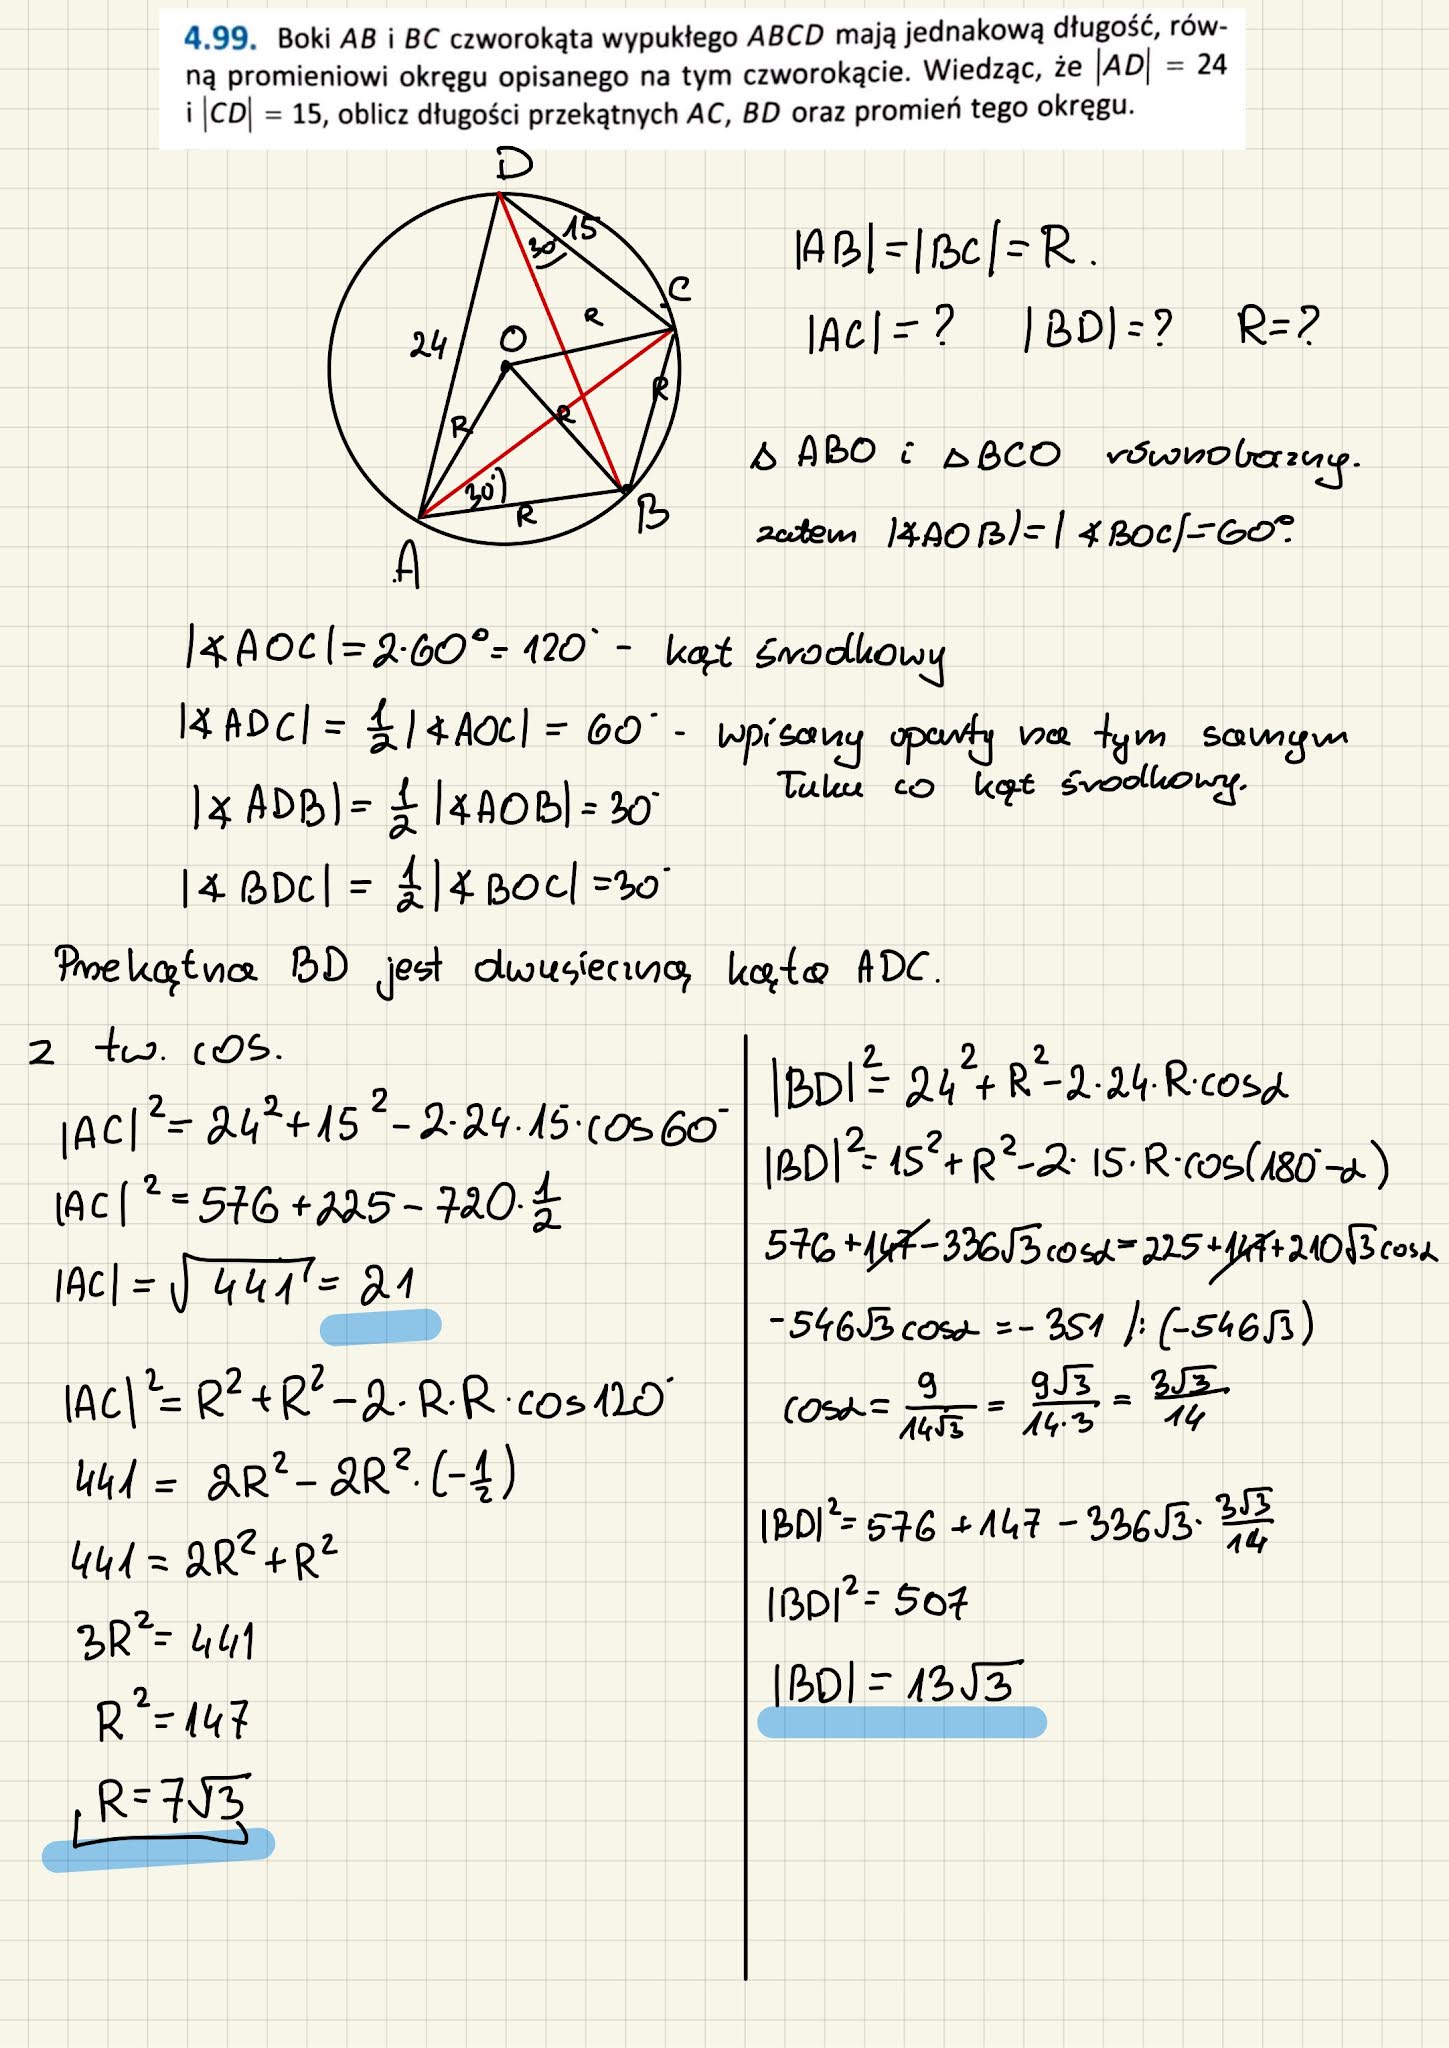 4.99. Boki AB i BC czworokąta wypukłego ABCD mają jednakową długość, rów-
ną promieniowi okręgu opisanego na tym czworokącie. Wiedząc, że |AD| = 24
i |CD| = 15, oblicz długości przekątnych AC, BD oraz promień tego okręgu.
D
15
30°
C
R
24
O
R
R
R
30°
R
B
A
|AB|=|BC|=R.
|AC|=? |BD|=? R=?
△ ABO i △BCO równoboczny.
zatem |∢AOB|=|∢BOC|=60°.
|∢AOC|=2·60°=120° - kąt środkowy
|∢ADC|= 1/2 |∢AOC| = 60° - wpisany oparty na tym samym
łuku co kąt środkowy.
|∢ADB|= 1/2 |∢AOB|=30°
|∢BDC| = 1/2 |∢BOC| =30°
Przekątna BD jest dwusieczną kąta ADC.
z tw. cos.
|AC|²=24²+15²-2·24·15·cos60°
|AC|²=576+225-720·1/2
|AC|=√441=21
|AC|²=R²+R²-2·R·R·cos120°
441= 2R²-2R²·(-1/2)
441=2R²+R²
3R²=441
R²=147
R=7√3
|BD|²=24²+R²-2·24·R·cosα
|BD|²=15²+R²-2·15·R·cos(180°-α)
576+147-336√3cosα=225+147+210√3cosα
-546√3cosα=-351 /:(-546√3)
cosα= 9/14√3 = 9√3/14·3 = 3√3/14
|BD|²=576+147-336√3·3√3/14
|BD|²=507
|BD|=13√3